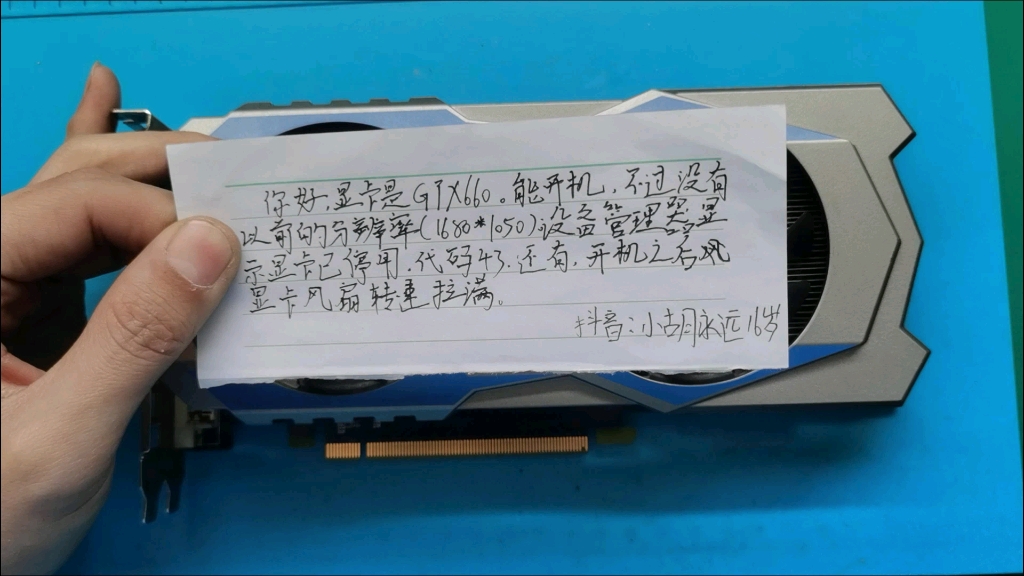 你好,显卡是GTX660。能开机,不过没有
以前的分辨率(1680*1050),设备管理器显
示显卡已停用,代码43.还有,开机之后风
显卡风扇转速拉满。
抖音:小胡永远16岁